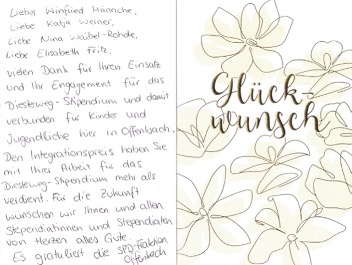 Lieber Winfried Männche,
Liebe Katja Werner,
Liebe Nina Waibel-Rohde,
Liebe Elisabeth Fritz,
vielen Dank für Ihren Einsatz
und Ihr Engagement für das
Diesterweg-Stipendium und damit
verbunden für Kinder und
Jugendliche hier in Offenbach.
Den Integrationspreis haben Sie
mit Ihrer Arbeit für das
Diesterweg-Stipendium mehr als
verdient. Für die Zukunft
wünschen wir Ihnen und allen
Stipendiatinnen und Stipendiaten
von Herzen alles Gute
Es gratuliert die SPD-Fraktion
Offenbach
Glück-
wunsch